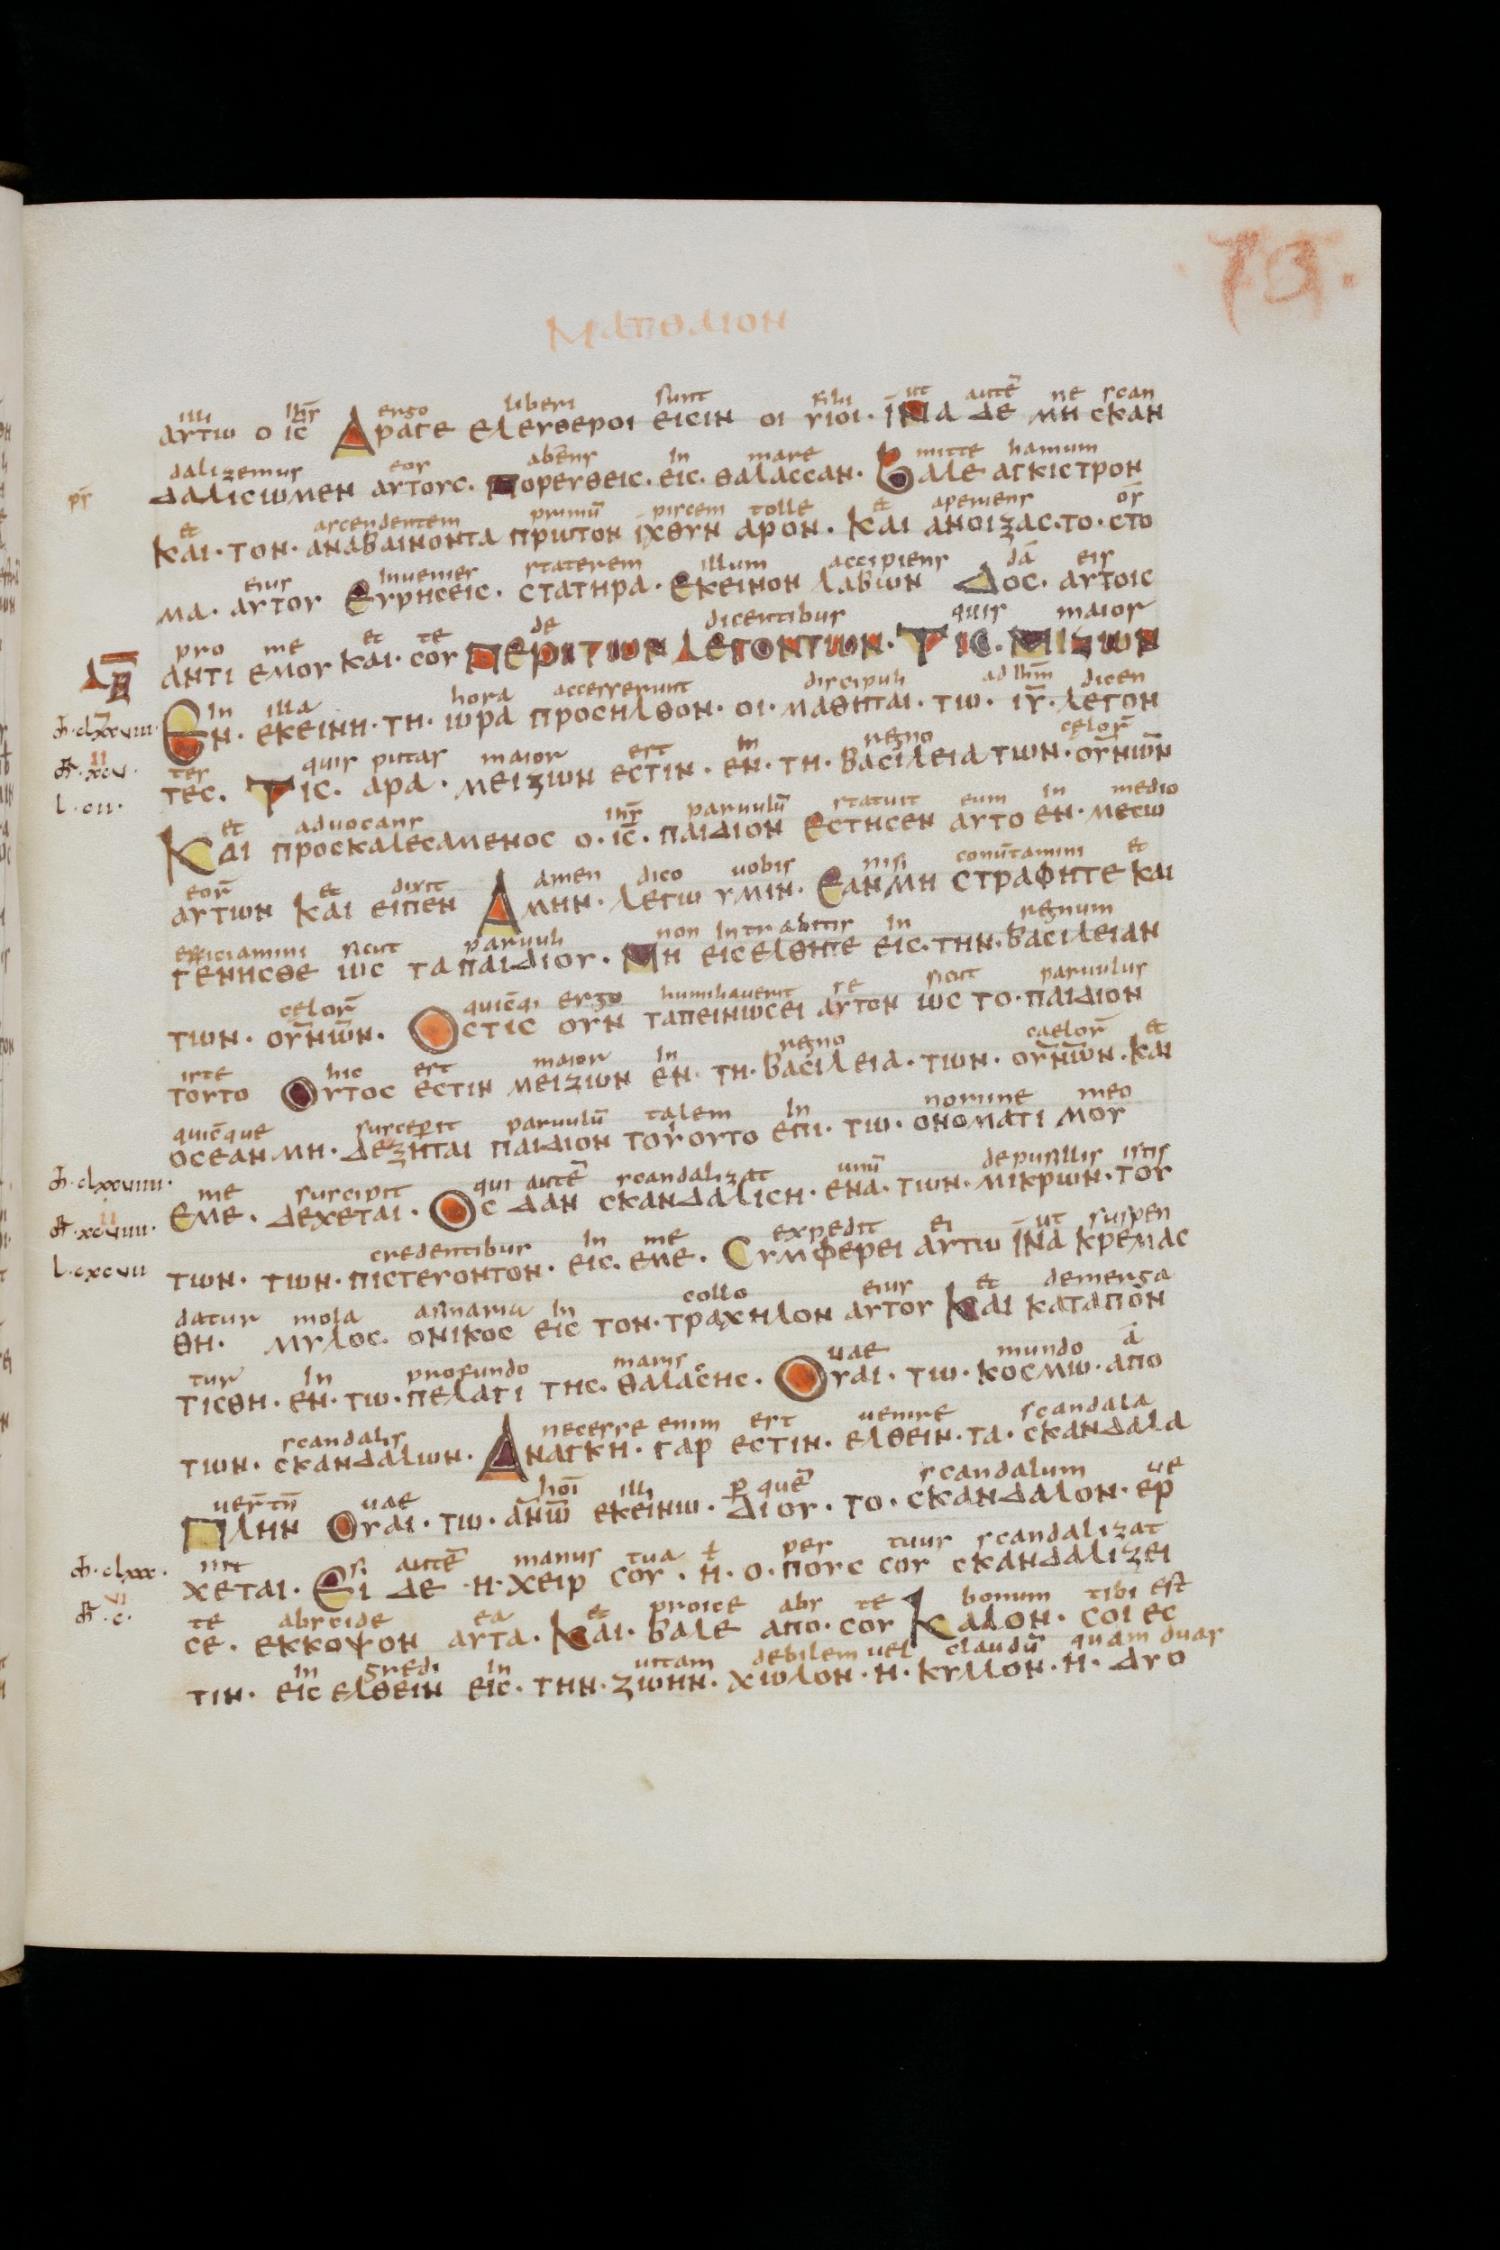 73.
ΜΑΤΘΑΙΟΝ
illi ih̄s ergo liberi sunt filii ut autē ne scan
ΑΥΤΩ Ο ΙC̄ ΑΡΑΓΕ ΕΛΕΥΘΕΡΟΙ ΕΙCΙΝ ΟΙ ΥΙΟΙ· ΙΝΑ ΔΕ ΜΗ CΚΑΝ
dalizemus eos abiens in mare mitte hamum
ΔΑΛΙCΩΜΕΝ ΑΥΤΟΥC· ΠΟΡΕΥΘΕΙC· ΕΙC· ΘΑΛΑCCΑΝ· ΒΑΛΕ ΑΓΚΙCΤΡΟΝ
et ascendentem primū piscem tolle et aperiens os
ΚΑΙ· ΤΟΝ· ΑΝΑΒΑΙΝΟΝΤΑ ΠΡΩΤΟΝ ΙΧΘΥΝ ΑΡΟΝ· ΚΑΙ ΑΝΟΙΞΑC·ΤΟ·CΤΟ
eius invenies staterem illum accipiens dā eis
ΜΑ· ΑΥΤΟΥ ΕΥΡΗCΕΙC· CΤΑΤΗΡΑ· ΕΚΕΙΝΟΝ ΛΑΒΩΝ ΔΟC· ΑΥΤΟΙC
pro me et te de dicentibus quis maior
ΑΝΤΙ ΕΜΟΥ ΚΑΙ· CΟΥ ΠΕΡΙ ΤΩΝ ΛΕΓΟΝΤΩΝ· ΤΙC· ΜΙΖΩΝ
in illa hora accesserunt discipuli ad ih̄m dicen
ΕΝ· ΕΚΕΙΝΗ· ΤΗ· ΩΡΑ ΠΡΟCΗΛΘΟΝ· ΟΙ· ΜΑΘΗΤΑΙ· ΤΩ· ΙῩ· ΛΕΓΟΝ
tes quis putas maior est in regno celor̄
ΤΕC· ΤΙC· ΑΡΑ· ΜΕΙΖΩΝ ΕCΤΙΝ· ΕΝ· ΤΗ· ΒΑCΙΛΕΙΑ ΤΩΝ· ΟΥΝ̄ΩΝ
et advocans ih̄s parvulū statuit eum in medio
ΚΑΙ ΠΡΟCΚΑΛΕCΑΜΕΝΟC Ο· ΙC̄· ΠΑΙΔΙΟΝ ΕCΤΗCΕΝ ΑΥΤΟ ΕΝ· ΜΕCΩ
eor̄ et dixit amen dico vobis nisi conūtamini et
ΑΥΤΩΝ ΚΑΙ ΕΙΠΕΝ ΑΜΗΝ· ΛΕΓΩ ΥΜΙΝ· ΕΑΝ ΜΗ CΤΡΑΦΗΤΕ ΚΑΙ
efficiamini sicut parvuli non intrabitis in regnum
ΓΕΝΗCΘΕ ΩC ΤΑ ΠΑΙΔΙΟΥ· ΜΗ ΕΙCΕΛΘΗΤΕ ΕΙC·ΤΗΝ·ΒΑCΙΛΕΙΑΝ
celor̄ quicūqi ergo humiliaverit se sicut parvulus
ΤΩΝ· ΟΥΝ̄ΩΝ· ΟCΤΙC ΟΥΝ ΤΑΠΕΙΝΩCΕΙ ΑΥΤΟΝ ΩC ΤΟ·ΠΑΙΔΙΟΝ
iste hic est maior in regno caelor̄ et
ΤΟΥΤΟ ΟΥΤΟC ΕCΤΙΝ ΜΕΙΖΩΝ ΕΝ· ΤΗ· ΒΑCΙΛΕΙΑ· ΤΩΝ· ΟΥΝ̄ΩΝ·ΚΑΙ
quicūque susceperit parvulū talem in nomine meo
ΟC ΕΑΝ ΜΗ· ΔΕΞΗΤΑΙ ΠΑΙΔΙΟΝ ΤΟΥΟΥΤΟ ΕΠΙ· ΤΩ· ΟΝΟΜΑΤΙ ΜΟΥ
me suscipit qui autē scandalizat unū de pusillis istis
ΕΜΕ· ΔΕΧΕΤΑΙ· ΟC ΔΑΝ CΚΑΝΔΑΛΙCΗ· ΕΝΑ· ΤΩΝ· ΜΙΚΡΩΝ· ΤΟΥ
credentibus in me expedit ei ut suspen
ΤΩΝ· ΤΩΝ· ΠΙCΤΕΥΟΝΤΟΝ· ΕΙC· ΕΜΕ· CΥΜΦΕΡΕΙ ΑΥΤΩ ΙΝΑ ΚΡΕΜΑC
datur mola asinaria in collo eius et demerga
ΘΗ· ΜΥΛΟC· ΟΝΙΚΟC ΕΙC ΤΟΝ· ΤΡΑΧΗΛΟΝ ΑΥΤΟΥ ΚΑΙ ΚΑΤΑΠΟΝ
tur in profundo maris vae mundo ā
ΤΙCΘΗ· ΕΝ· ΤΩ· ΠΕΛΑΓΙ ΤΗC· ΘΑΛΑCCΗC· ΟΥΑΙ· ΤΩ· ΚΟCΜΩ· ΑΠΟ
scandalis necesse enim est venire scandala
ΤΩΝ· CΚΑΝΔΑΛΩΝ· ΑΝΑΓΚΗ· ΓΑΡ ΕCΤΙΝ· ΕΛΘΕΙΝ·ΤΑ· CΚΑΝΔΑΛΑ
vertn̄ vae hoī illi p̲ quē scandalum ve
ΠΛΗΝ ΟΥΑΙ· ΤΩ· ΑΝ̄Ω ΕΚΕΙΝΩ· ΔΙ ΟΥ· ΤΟ· CΚΑΝΔΑΛΟΝ· ΕΡ
nit si autē manus tua ƚ pes tuus scandalizat
ΧΕΤΑΙ· ΕΙ ΔΕ ·Η· ΧΕΙΡ CΟΥ· Η· Ο· ΠΟΥC CΟΥ CΚΑΝΔΑΛΙΖΕΙ
te abscide ea et proice abs te bonum tibi est
CΕ· ΕΚΚΟΨΟΝ ΑΥΤΑ· ΚΑΙ· ΒΑΛΕ ΑΠΟ· CΟΥ ΚΑΛΟΝ· CΟΙ ΕC
in gredi in vitam debilem vel claudū quam duas
ΤΙΝ· ΕΙCΕΛΘΕΙΝ ΕΙC· ΤΗΝ· ΖΩΗΝ· ΧΩΛΟΝ· Η· ΚΥΛΛΟΝ· Η· ΔΥΟ